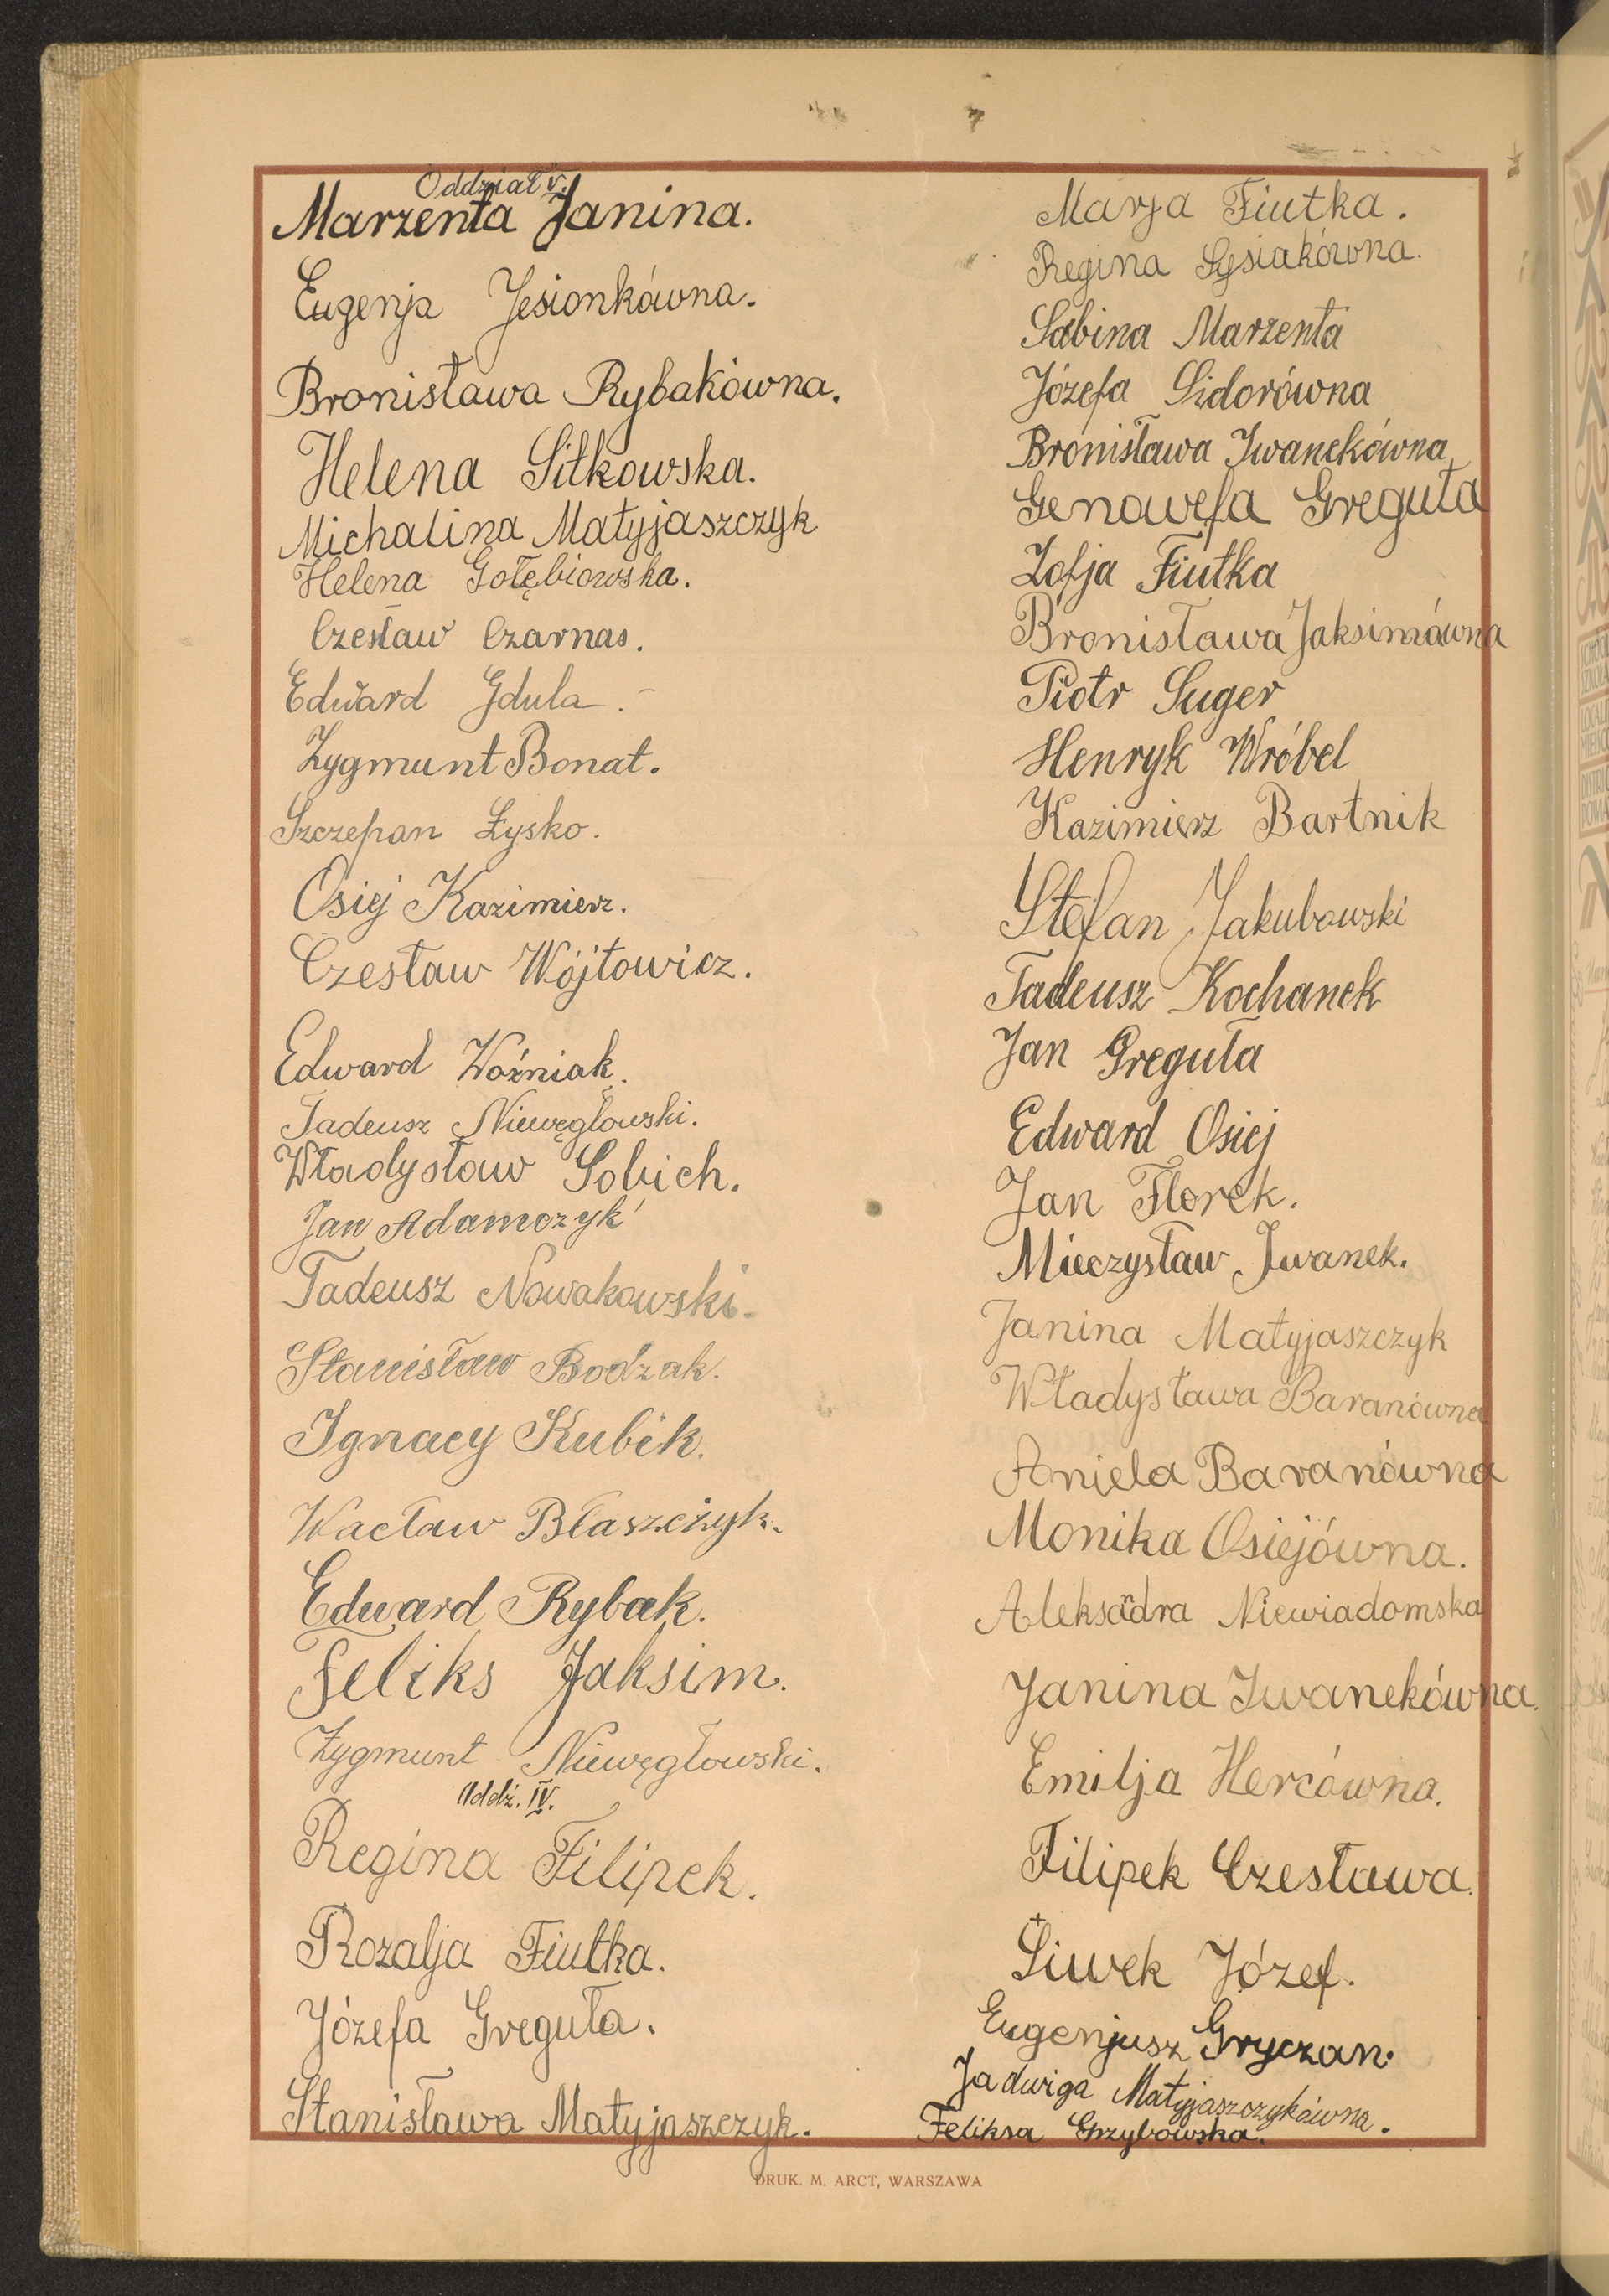 Oddział V.
Marzenta Janina.
Eugenja Jesionkówna.
Bronisława Rybakówna.
Helena Sitkowska.
Michalina Matyjaszczyk
Helena Gołębiowska.
Czesław Czarnas.
Edward Gdula.
Zygmunt Bonat.
Szczepan Łysko.
Osiej Kazimierz.
Czesław Wójtowicz.
Edward Woźniak.
Tadeusz Niewęgłowski.
Władysław Sobich.
Jan Adamczyk
Tadeusz Nowakowski.
Stanisław Bodzak.
Ignacy Kubik.
Wacław Błaszczyk.
Edward Rybak.
Feliks Jaksim.
Zygmunt Niewęgłowski.
Oddz. IV.
Regina Filipek.
Rozalja Fiutka.
Józefa Greguła.
Stanisława Matyjaszczyk.
Marja Fiutka.
Regina Sysiakówna.
Sabina Marzenta
Józefa Sidorówna
Bronisława Iwanekówna
Genowefa Greguła
Zofja Fiutka
Bronisława Jaksimówna
Piotr Suger
Henryk Wróbel
Kazimierz Bartnik
Stefan Jakubowski
Tadeusz Kochanek
Jan Greguła
Edward Osiej
Jan Florek.
Mieczysław Iwanek.
Janina Matyjaszczyk
Władysława Baranówna
Aniela Baranówna
Monika Osiejówna.
Aleksadra Niewiadomska
Janina Iwanekówna.
Emilja Hercówna.
Filipek Czesława.
Siwek Józef.
Eugenjusz Gryczan.
Jadwiga Matyjaszczykówna.
Feliksa Grzybowska.
DRUK. M. ARCT, WARSZAWA